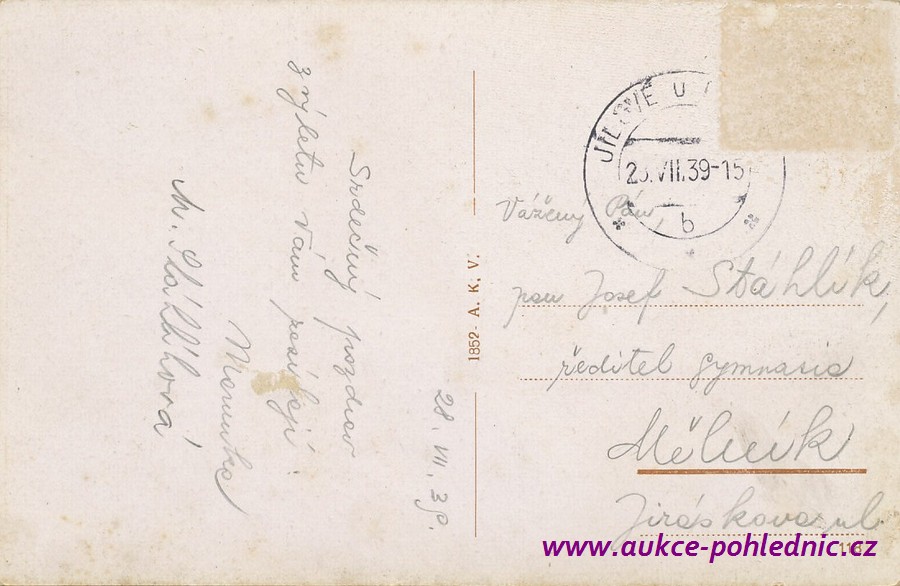 Srdečný pozdrav
z výletu Vám posílají:
Marunka
M. Stáhlíková
28. VII. 39.
1852 - A. K. V.
JÍLOVÉ U
VII.39-15
b
Vážený Pán,
pan Josef Stáhlík,
ředitel gymnasia
Mělník
Jiráskova ul.
www.aukce-pohlednic.cz